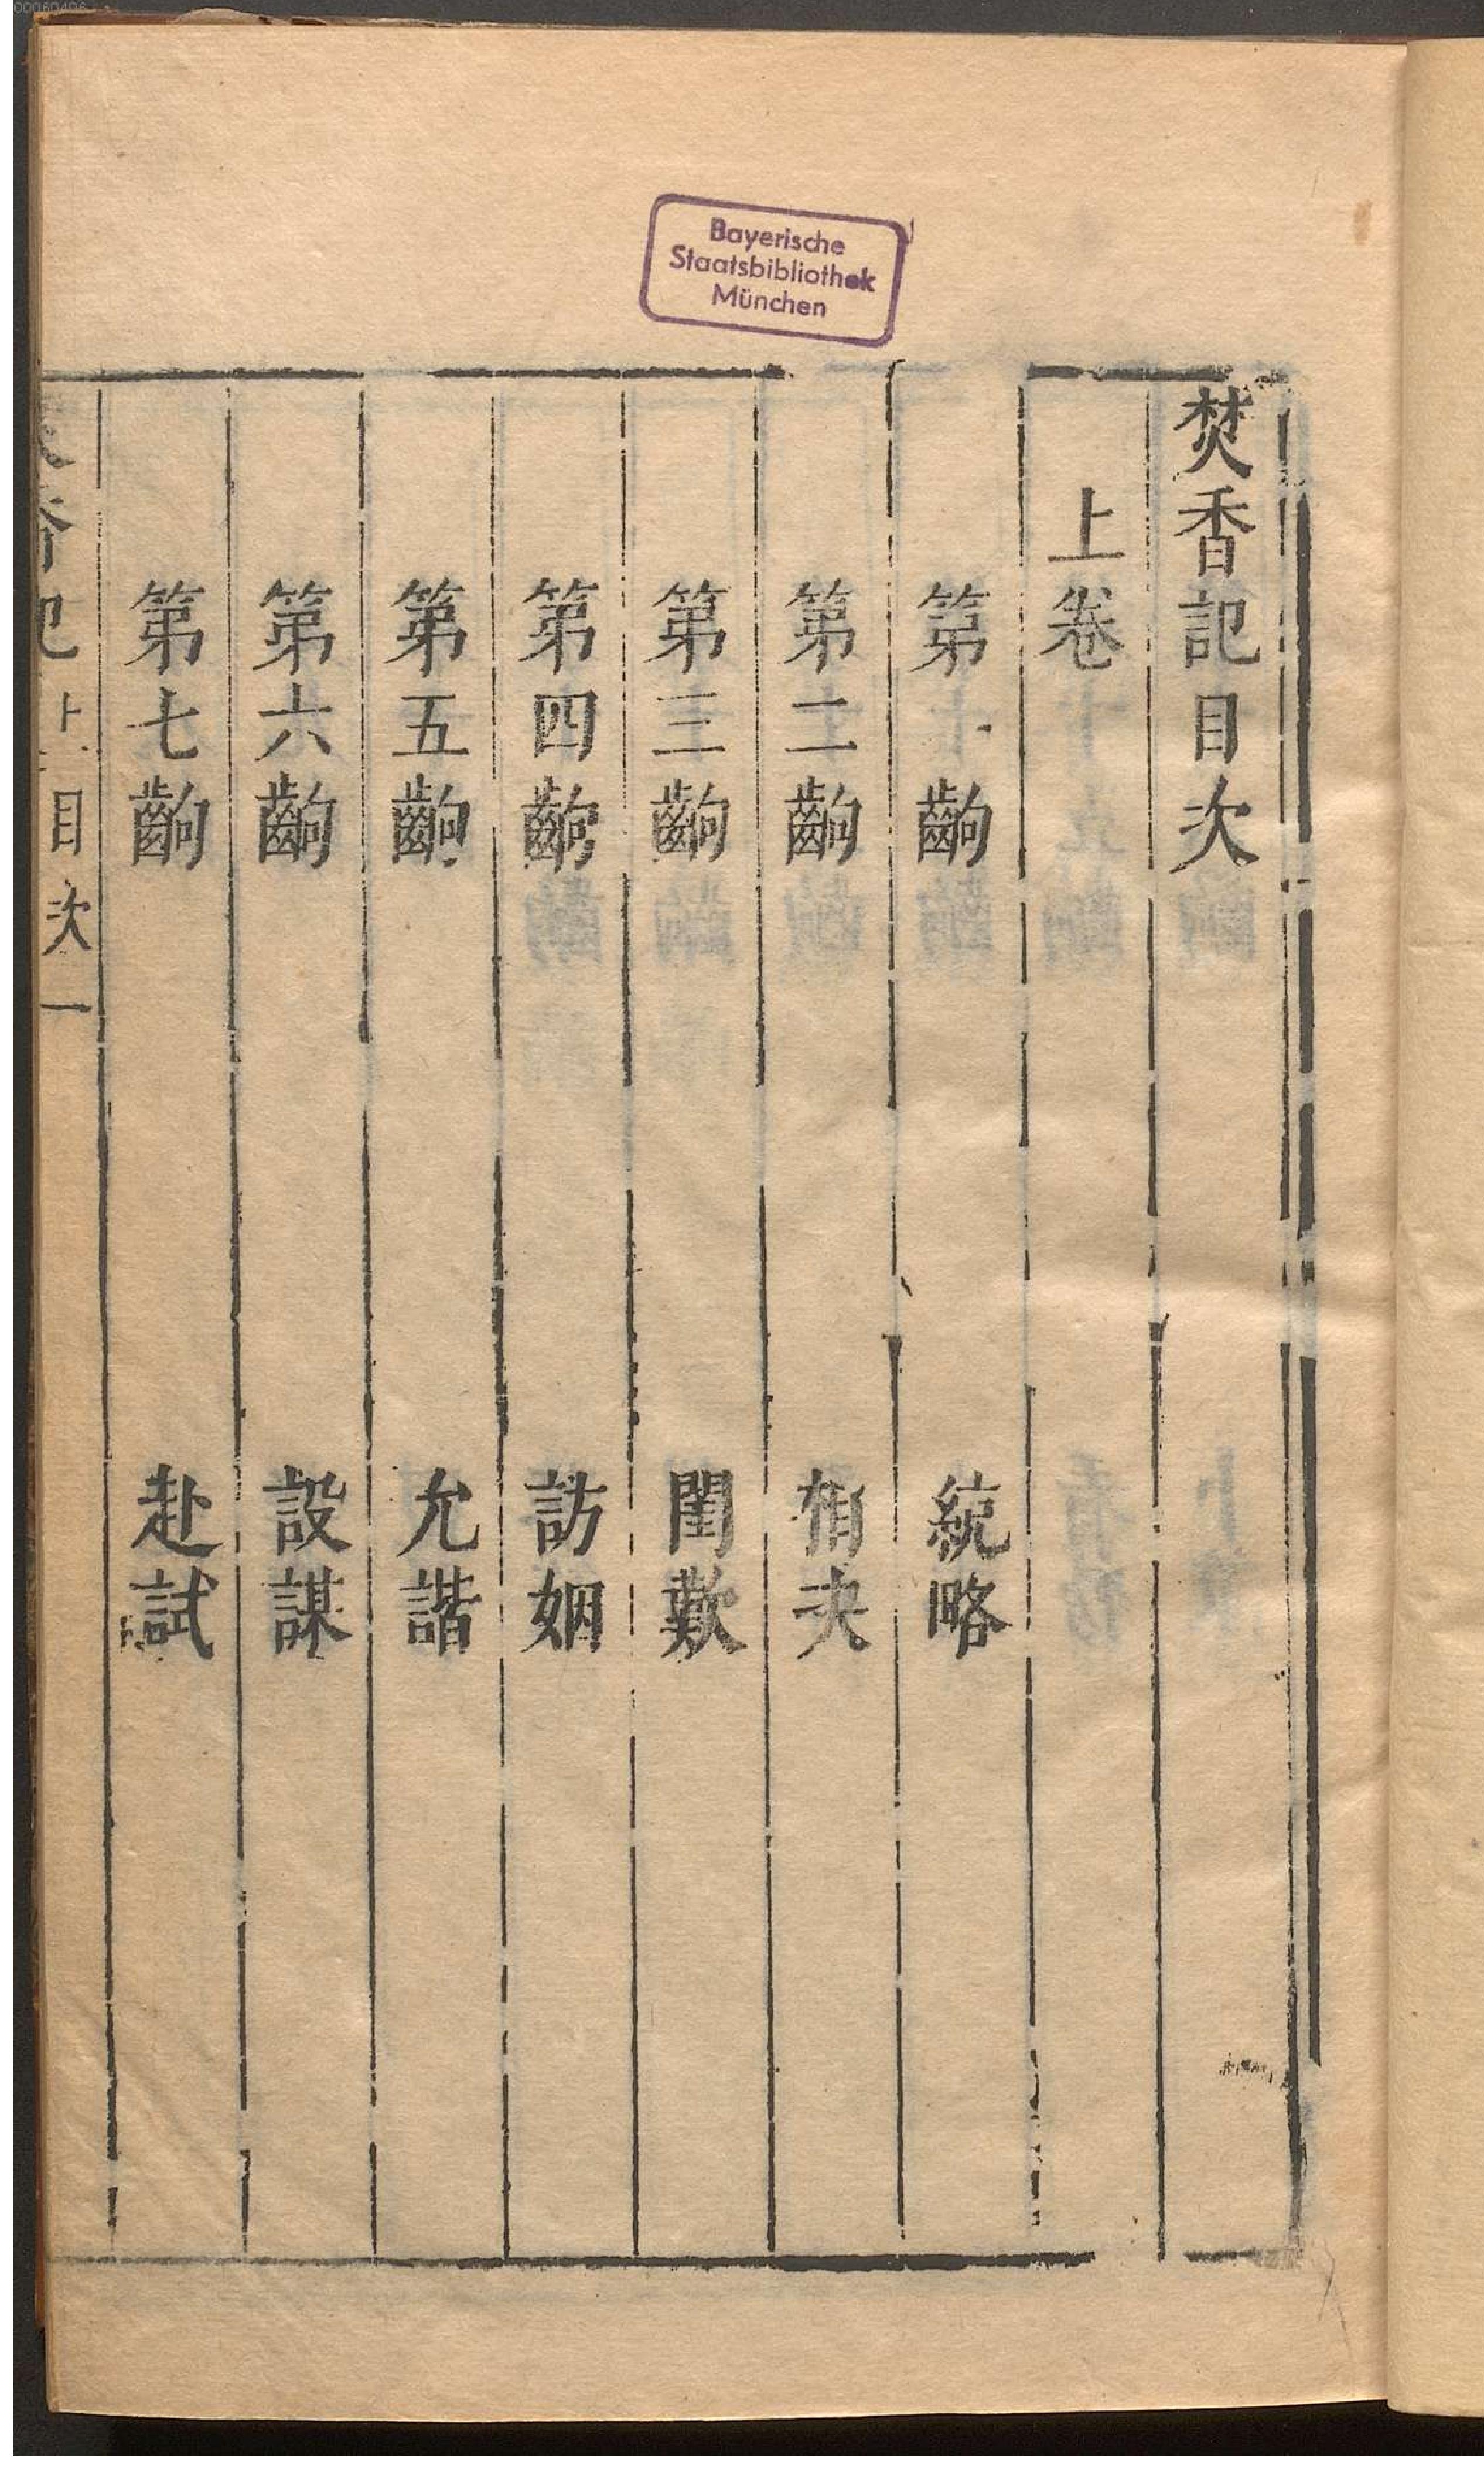 00060406
Bayerische
Staatsbibliothek
München
焚香記目次
上卷
第 齣 統略
第二齣 相夬
第三齣 閨歎
第四齣 訪姻
第五齣 允諧
第六齣 設謀
第七齣 赴試
香記 上 目次 一